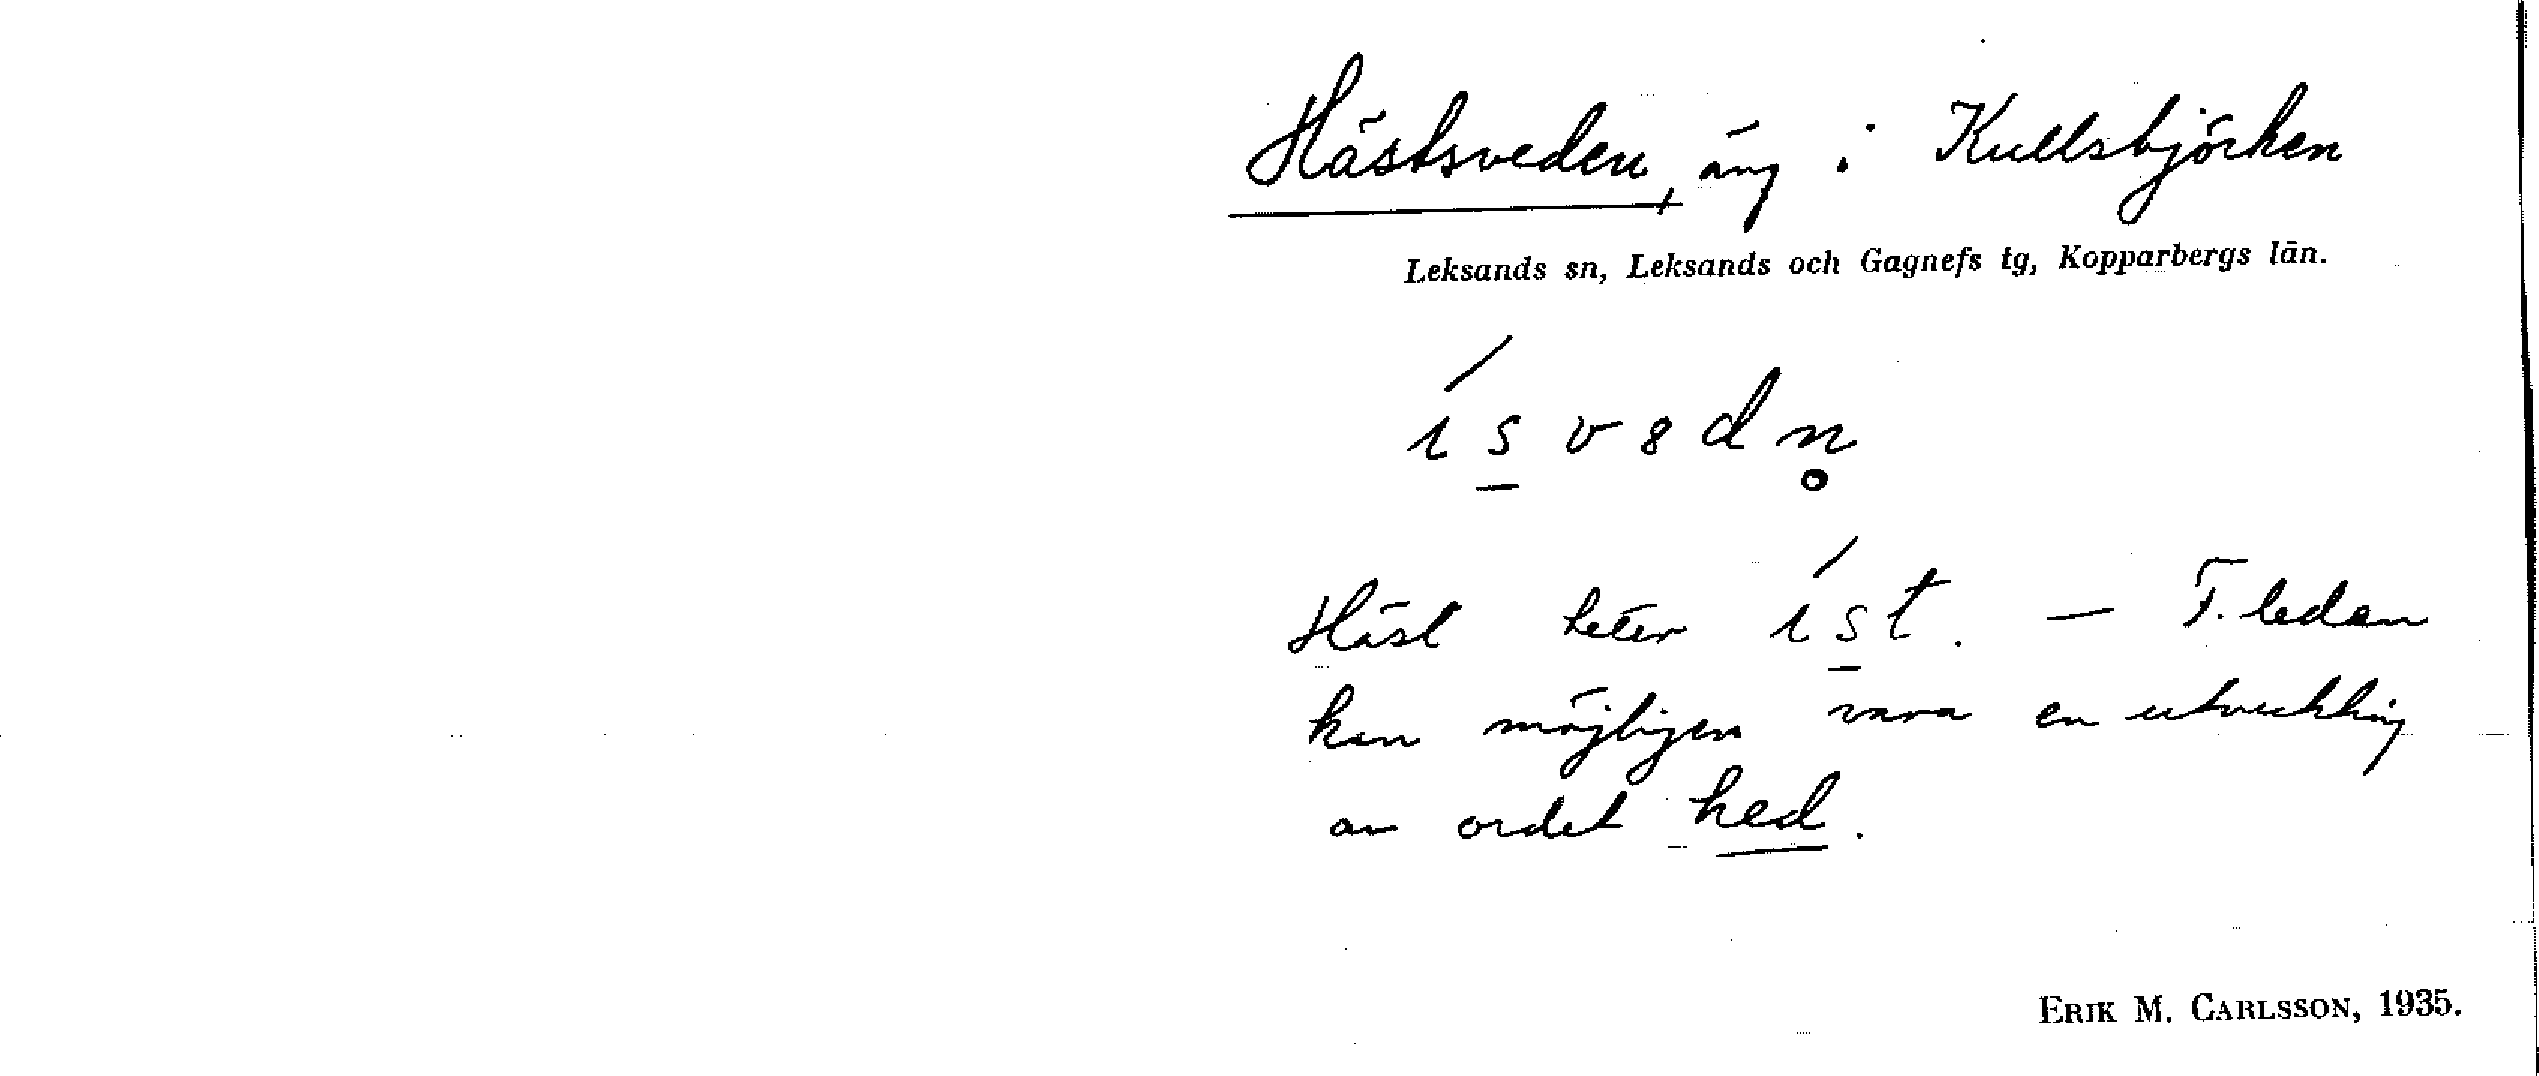 Hästsveden, äng i Kullsbjörken
Leksands sn, Leksands och Gagnefs tg, Kopparbergs län.
Häst heter íst. — F. leden
kan möjligen vara en utveckling
av ordet hed.
ERIK M. CARLSSON, 1935.